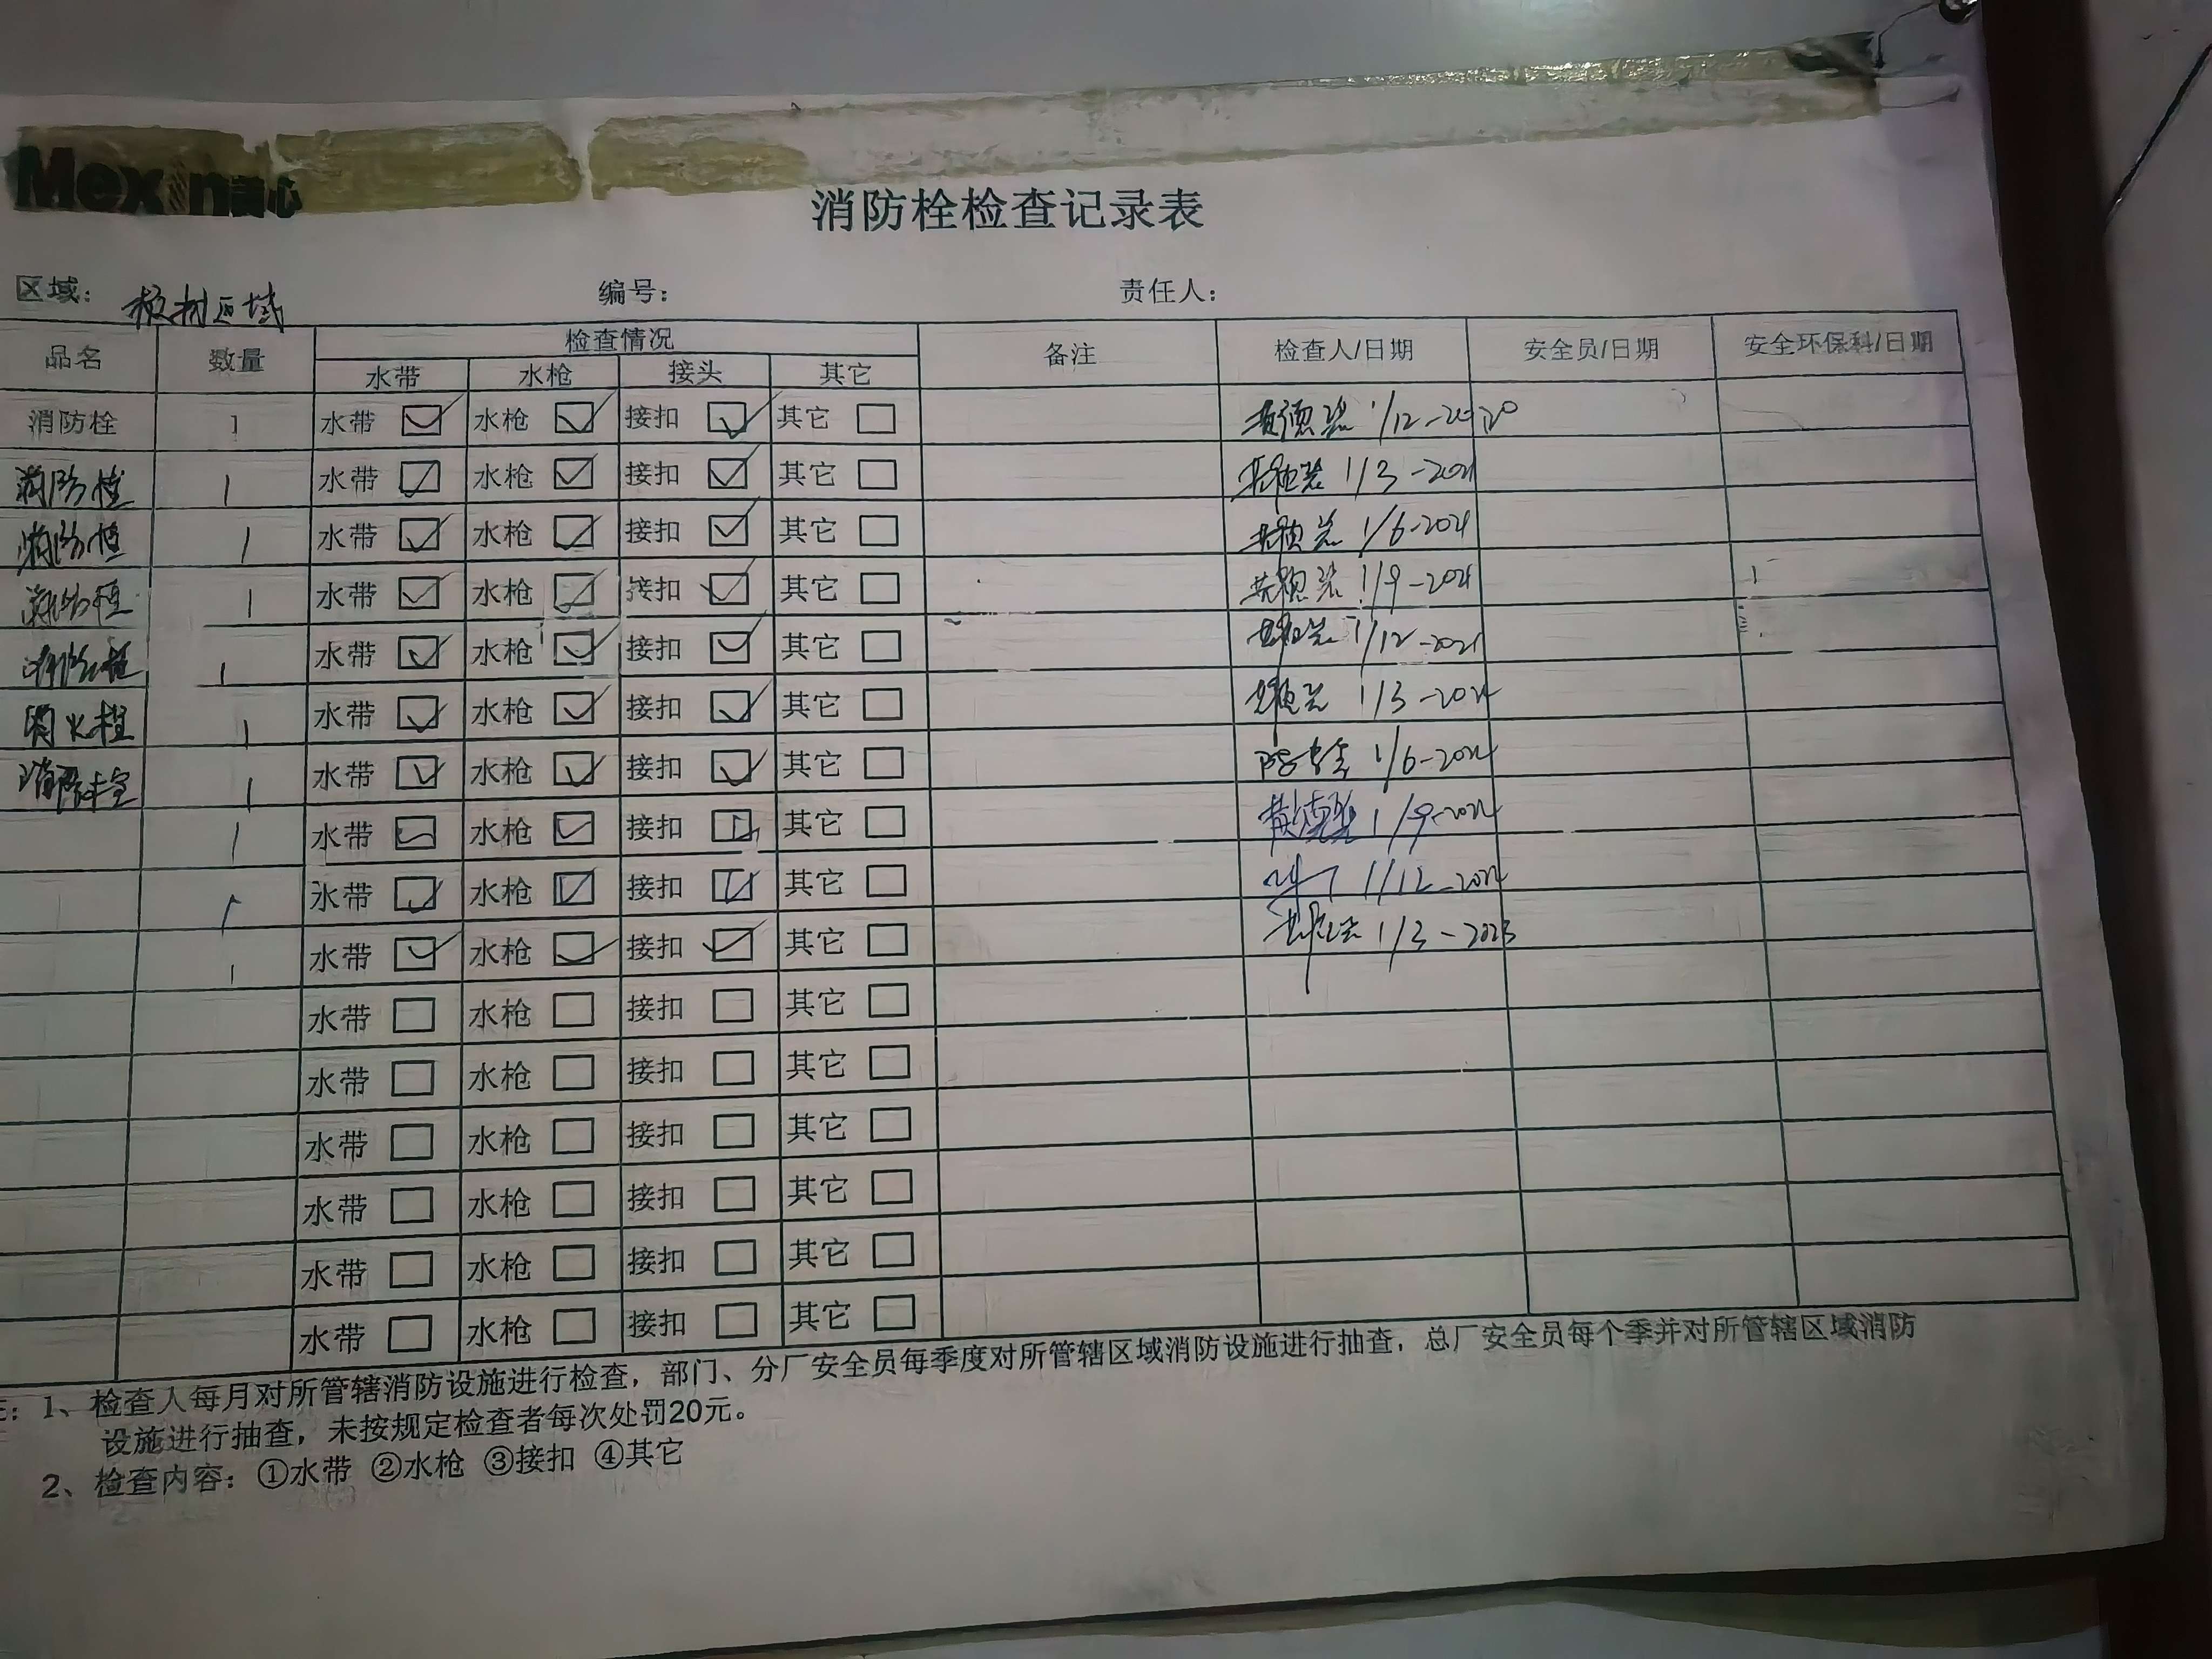 Mexin美心
消防栓检查记录表
区域: 板材区域 编号: 责任人:
品名 数量 检查情况 备注 检查人/日期 安全员/日期 安全环保科/日期
水带 水枪 接头 其它
消防栓 1 水带 ☑ 水枪 ☑ 接扣 ☑ 其它 □ 1/12-2020
消防栓 1 水带 ☑ 水枪 ☑ 接扣 ☑ 其它 □ 1/3-2021
消防栓 1 水带 ☑ 水枪 ☑ 接扣 ☑ 其它 □ 1/6-2021
消防栓 1 水带 ☑ 水枪 ☑ 接扣 ☑ 其它 □ 1/9-2021
消防栓 1 水带 ☑ 水枪 ☑ 接扣 ☑ 其它 □ 1/12-2021
消火栓 1 水带 ☑ 水枪 ☑ 接扣 ☑ 其它 □ 1/3-2022
消防栓 1 水带 ☑ 水枪 ☑ 接扣 ☑ 其它 □ 1/6-2022
1 水带 ☑ 水枪 ☑ 接扣 ☑ 其它 □ 1/9-2022
1 水带 ☑ 水枪 ☑ 接扣 ☑ 其它 □ 1/12-2022
1 水带 ☑ 水枪 ☑ 接扣 ☑ 其它 □ 1/3-2023
水带 □ 水枪 □ 接扣 □ 其它 □
水带 □ 水枪 □ 接扣 □ 其它 □
水带 □ 水枪 □ 接扣 □ 其它 □
水带 □ 水枪 □ 接扣 □ 其它 □
水带 □ 水枪 □ 接扣 □ 其它 □
水带 □ 水枪 □ 接扣 □ 其它 □
1、检查人每月对所管辖消防设施进行检查，部门、分厂安全员每季度对所管辖区域消防设施进行抽查，总厂安全员每个季并对所管辖区域消防
设施进行抽查，未按规定检查者每次处罚20元。
2、检查内容：①水带 ②水枪 ③接扣 ④其它